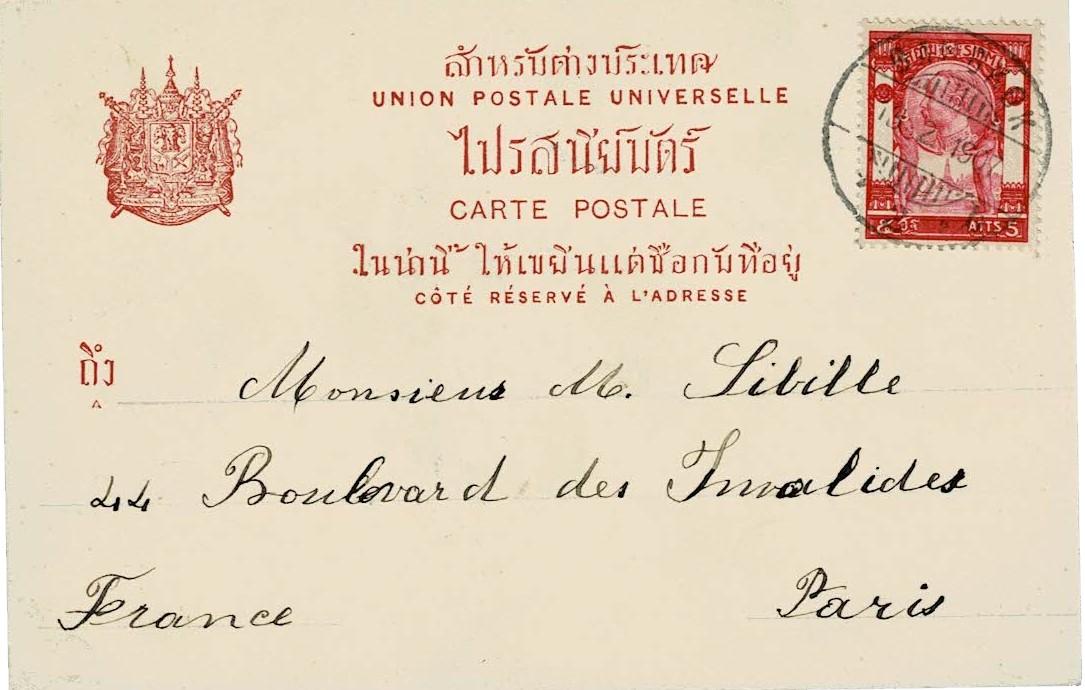 สำหรับต่างประเทศ
UNION POSTALE UNIVERSELLE
ไปรสนีย์บัตร์
CARTE POSTALE
ในน่านี้ ให้เขยีนแต่ชื่อกับที่อยู่
CÔTÉ RÉSERVÉ À L'ADRESSE
ATTS 5
ถึง
A
Monsieur M. Sibille
44 Boulevard des Invalides
Paris
France